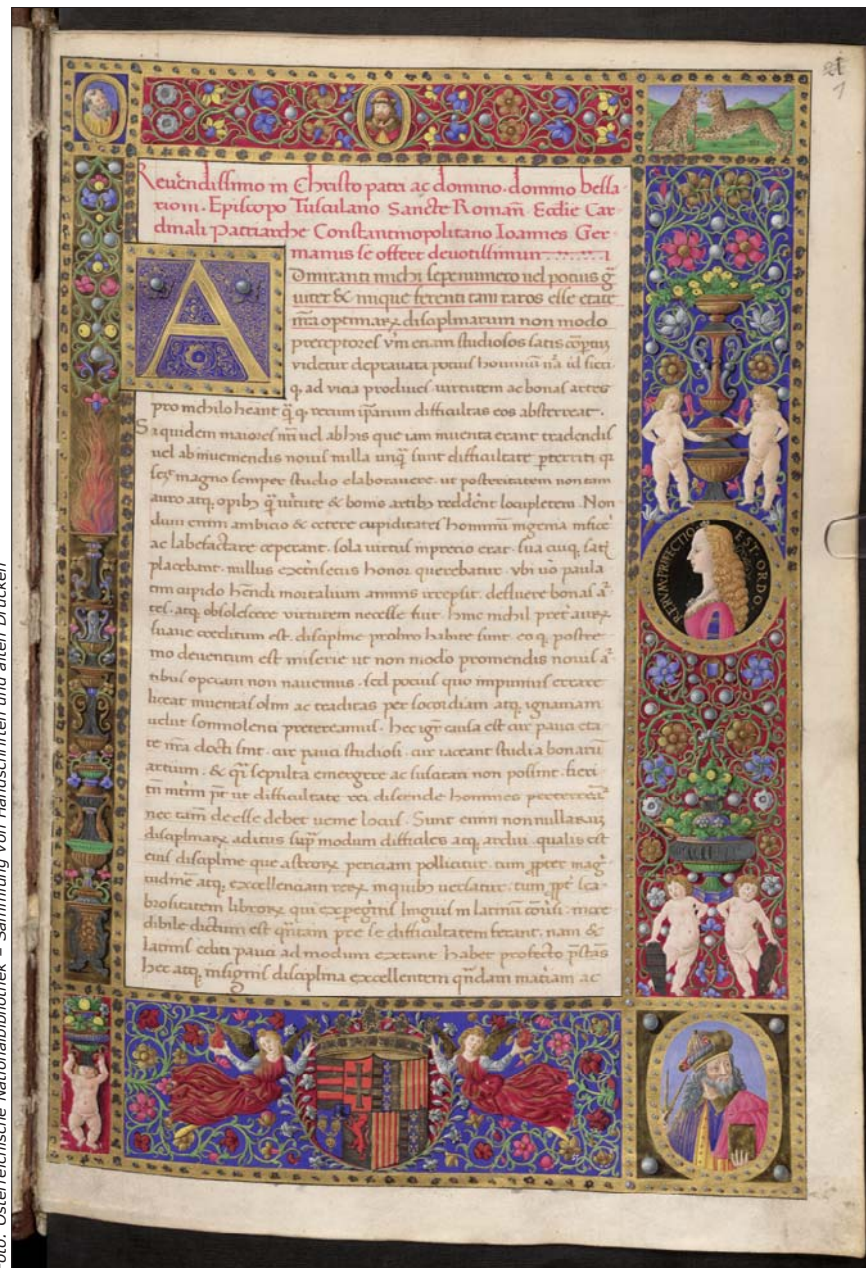 Reverendissimo in Christo patri ac domino. domino bessa
rioni. Episcopo Tusculano Sancte Roman̄ Ecclie Car
dinali Patriarche Constantinopolitano Ioannes Ger
manus se offert devotissimum
A
Dmiranti michi sepenumero uel potius
uiter & inique ferenti tam raros esse etate
n̄ra optimarꝝ disciplinarum non modo
preceptores vm̄ etiam studiosos satis
videtur deprauata potius hominū nā id fieri
q, ad vicia procliues uirtutem ac bonas artes
pro nichilo rerum difficultas eos absterreat.
Siquidem maiores nr̄i uel ab his que iam inuenta erant tradendis
uel ab inueniendis nouis nulla unq̄ sunt difficultate
magno semper studio elaborauere. ut posteritatem non tam
auro atq, opibꝫ q̄ uirtute & bonis artibꝫ reddēnt locupletem. Non
dum enim ambicio & cetere cupiditates hominum ingenia
ac labefactare ceperant. sola uirtus in precio erat. sua cuiq,
placebant. nullus extrinsecus honos querebatur. vbi uō paula
tim cupido hēndi mortalium animis irrepsit. defluere bonas ā
tes. atq, obsolescere virtutem necesse fuit. hinc nichil
suaue creditum est. discipline probro habite sunt. eo q, postre
mo deventum est miserie ut non modo promendis nouis ā
tibus operam non nauemus. sed potius quo impunius errare
liceat inuentas olim ac traditas per socordiam atq, ignauiam
uelut somnolenti pretereamus. hec igr̄ causa est cur pauci eta
te nr̄a docti sint. cur pauci studiosi. cur iaceant studia bonarū
artium. & sepulta emergere ac suscitari non possint. fieri
ut difficultate rei discende homines
nec deesse debet uenie locus. Sunt enim nonnullarum
disciplinarꝝ aditus sup̄ modum difficiles atq, ardui. qualis est
eius discipline que astrorꝝ periciam pollicitur. tum ꝓpter mag
tudinē atq, excellenciam rerꝝ in quibꝫ uersatur. tum
brositatem librorꝝ qui ex linguis in latinū incre
dibile dictum est pre se difficultatem ferant. nam &
latinis editi pauci admodum extant. Habet profecto
hec atq, insignis disciplina excellentem materiam ac
RERVM·PRFECTIO·EST·ORDO
1
Foto: Österreichische Nationalbibliothek – Sammlung von Handschriften und alten Drucken